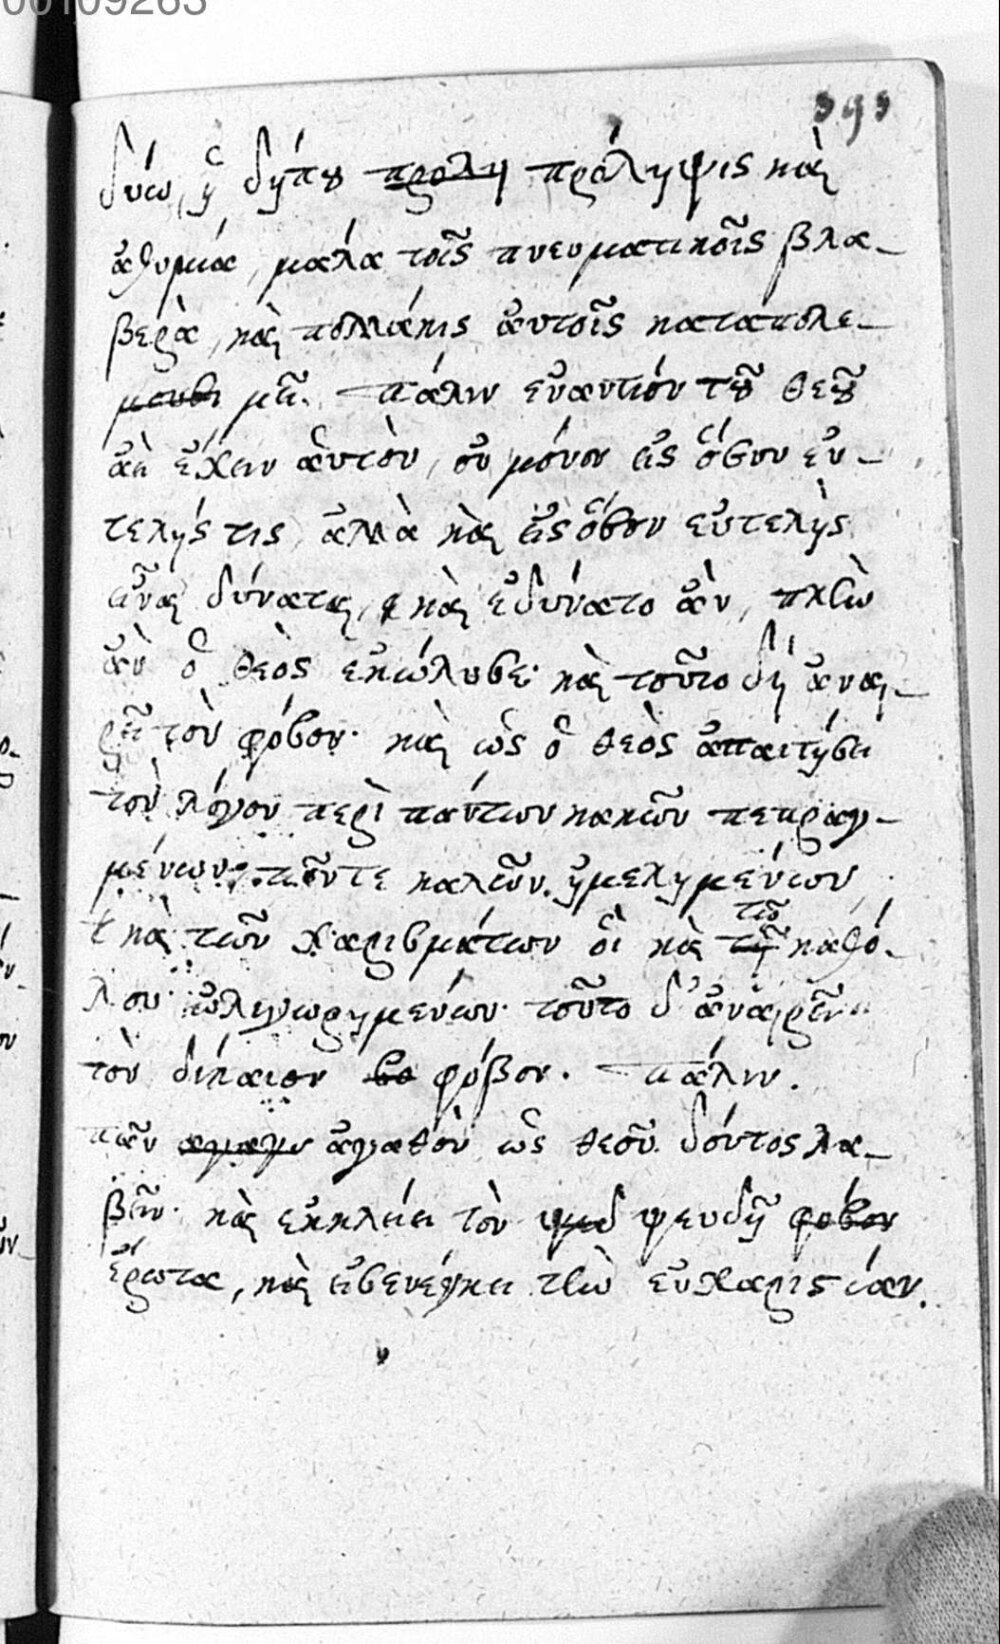 00109263
393
δύω, ἡ δήπου προλη πρόληψις καὶ
ἀθυμία, μάλα τοῖς πνευματικοῖς βλα-
βερὰ, καὶ πολλάκις ἀυτοῖς καταπολε-
μεῖ. πάλιν ἐναντιόν τοῦ θεοῦ
ἀεὶ ἔχειν ἀυτὸν, οὐ μόνον εἰς ὅσον ἐν-
τελής τις, ἀλλὰ καὶ εἰς ὅσον εὐτελὴς
εἶναι δύναται, καὶ ἐδύνατο ἂν,
ἂν ὁ θεὸς ἐκώλυσε· καὶ τοῦτο δὴ ἀναι-
ρεῖ τὸν φόβον· καὶ ὡς ὁ θεὸς ἀπαιτήσει
τὸν λόγον περὶ πάντων κακῶν πεπραγ-
μένων, τῶντε καλῶν ἠμελημένων,
καὶ τῶν χαρισμάτων καὶ τῶν καθό-
λου ὠλιγωρημένων· τοῦτο δ' ἀναιρεῖν
τὸν δίκαιον φόβον. πάλιν.
πᾶν ἀγαθὸν ὡς θεοῦ δόντος λα-
βεῖν· καὶ ἐκκλείει τὸν ψευδῆ φόβον
ἔρωτα, καὶ εἰσενέγκει τὴν εὐχαριστίαν.